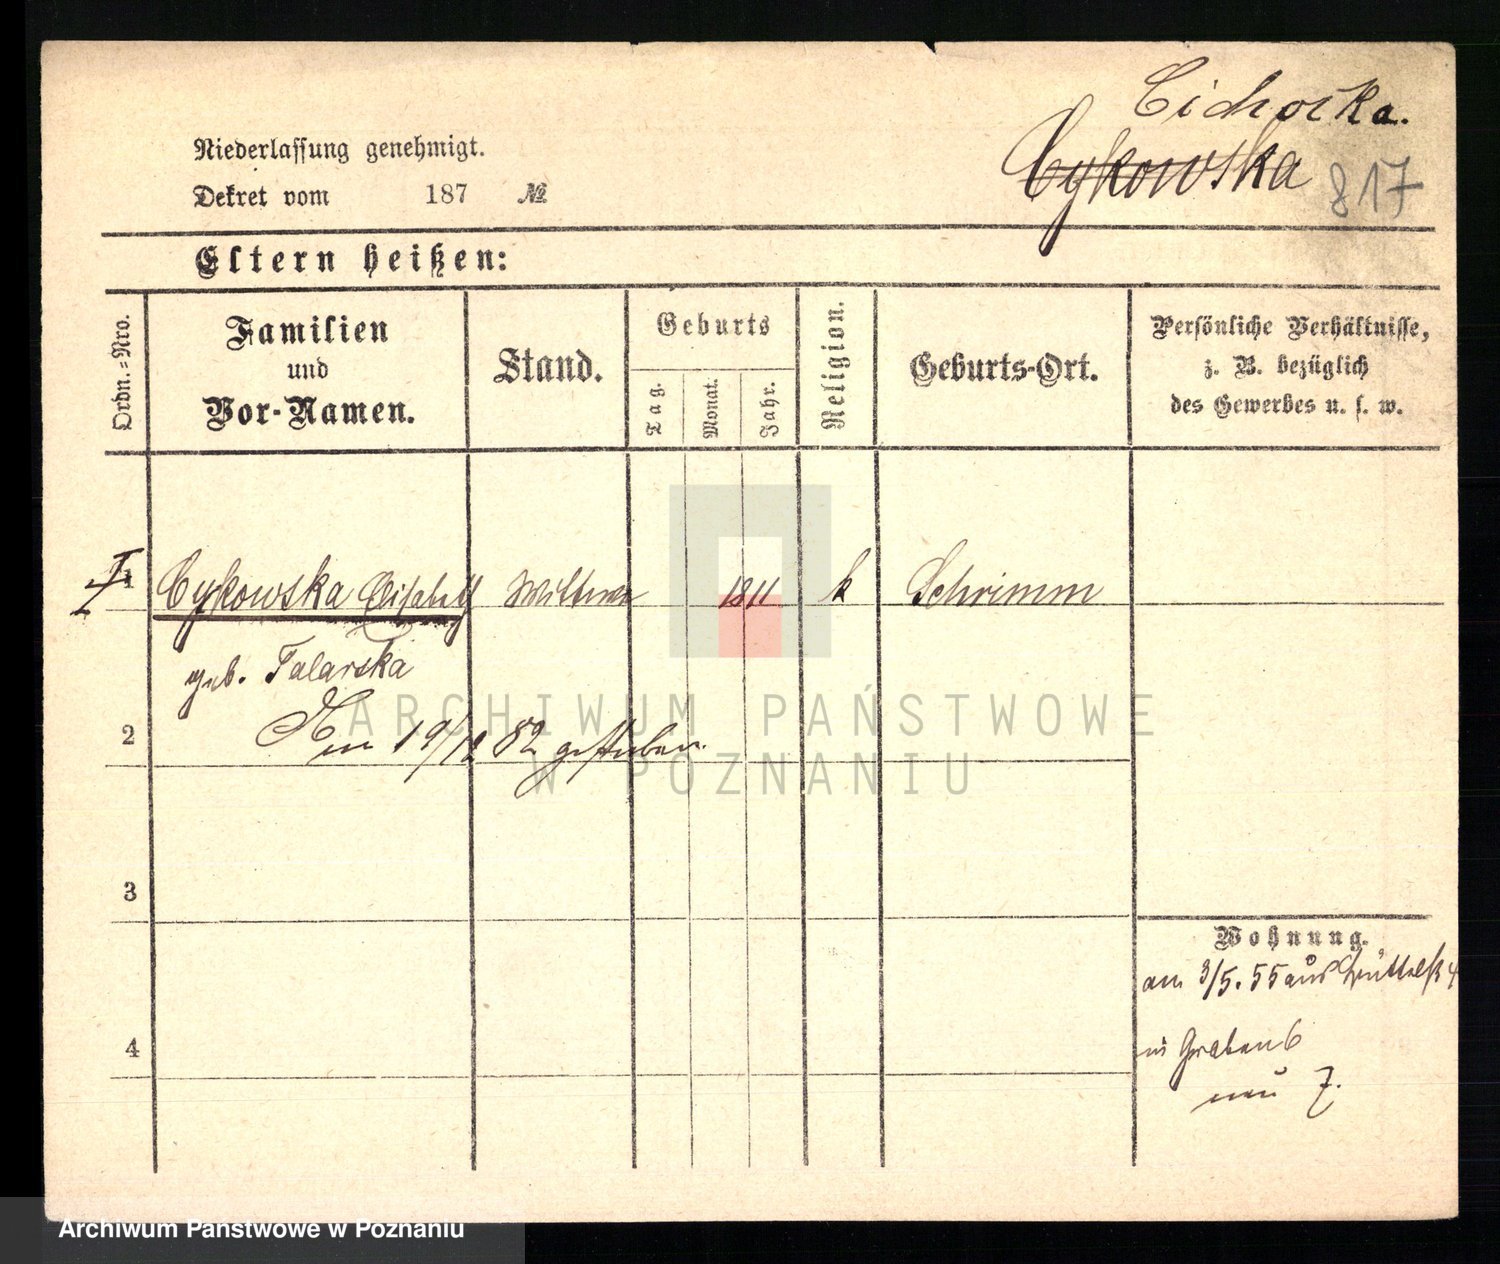 Cichocka.
Niederlassung genehmigt.
Cykowska 817
Dekret vom 187 №
Eltern heißen:
Ordn.-Nro.
Familien
und
Vor-Namen.
Stand.
Geburts
Tag.
Monat.
Jahr.
Religion.
Geburts-Ort.
Persönliche Verhältnisse,
z. B. bezüglich
des Gewerbes u. s. w.
1 Cykowska Elisabeth Wittwe 1811 k Schrimm
geb. Talarska
2 Am 19/12 82 gestorben.
ARCHIWUM PAŃSTWOWE
W POZNANIU
3
Wohnung.
am 3/5. 55 aus 4
4
in Graben 6
neu 7.
Archiwum Państwowe w Poznaniu